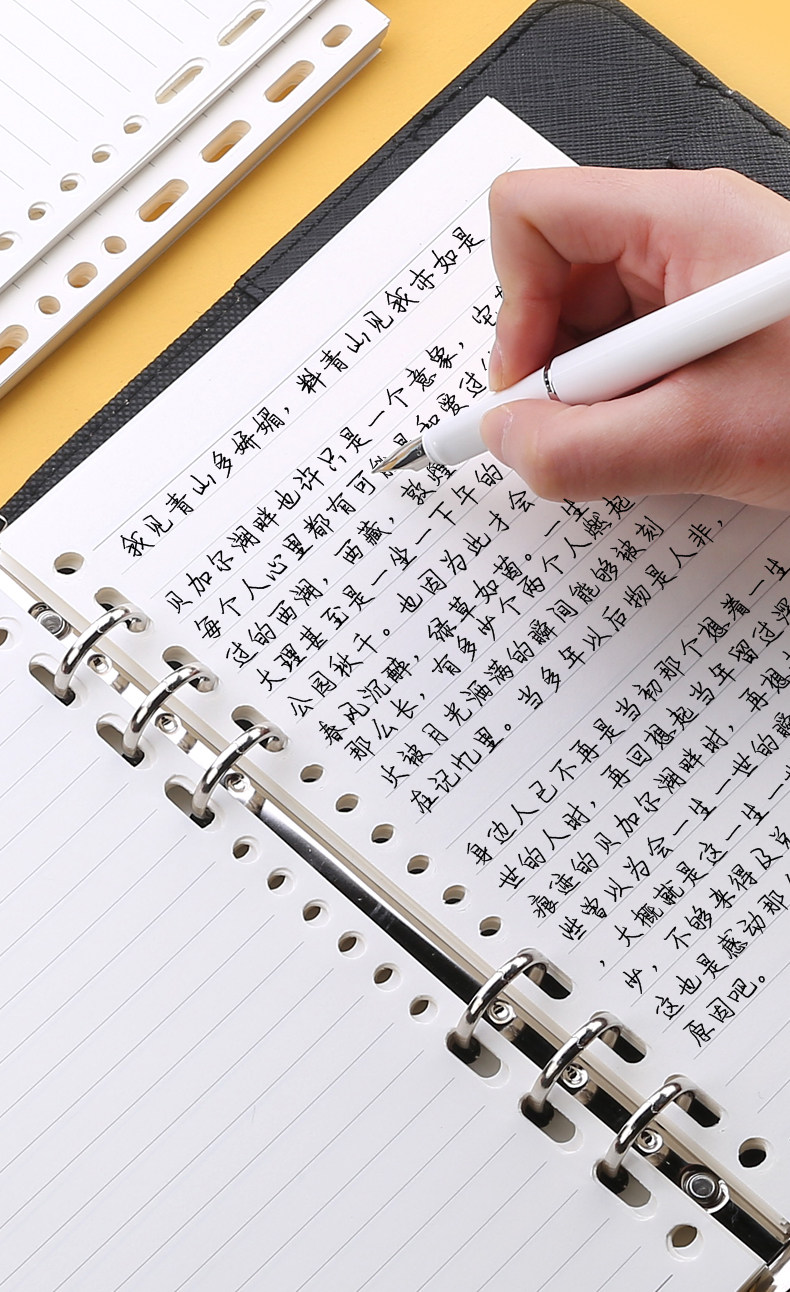 我见青山多娇媚，料青山见我亦如是
贝加尔湖畔也许只是一个意象，它
每个人心里都有可 是和爱过
过的西湖，西藏，敦煌
大理甚至是一坐一下午的
公园秋千。也因为此才会
春风沉醉，绿草如茵。一生
那么长，有多少个两个人燃起
火被月光洒满的瞬间能够被刻
在记忆里。当多年以后物是人非，
身边人已不再是当初那个想着一生
世的人时，再回想起当年留过深
痕迹的贝加尔湖畔时，再想
些曾以为会一生一世的瞬
，大概就是这一生一
少，不够来得及兑
这也是感动那
原因吧。